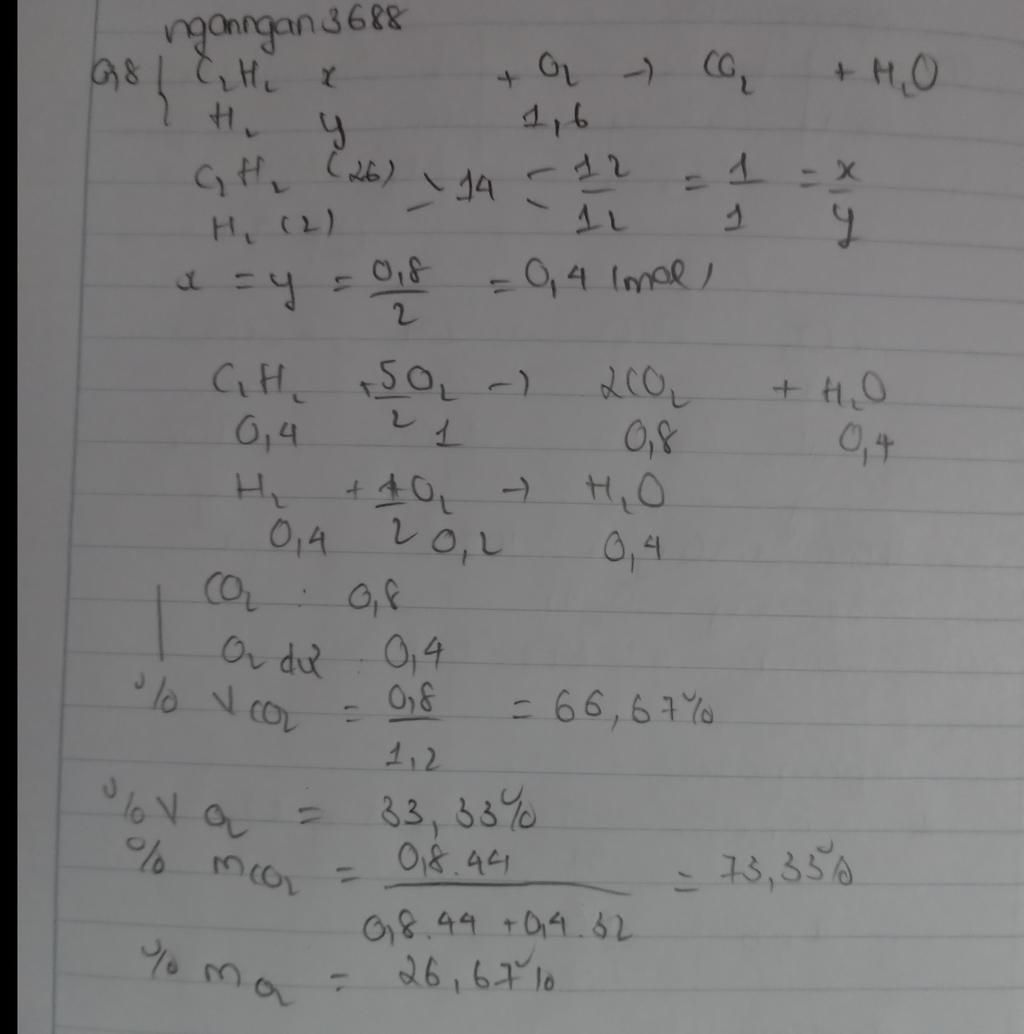 nganngan3688
0,8 { C2H2 x + O2 → CO2 + H2O
H2 y 1,6
C2H2 (26) 14 12/12 = 1/1 = x/y
H2 (2)
x = y = 0,8/2 = 0,4 (mol)
C2H2 + 5/2 O2 → 2CO2 + H2O
0,4 1 0,8 0,4
H2 + 1/2 O2 → H2O
0,4 0,2 0,4
CO2 : 0,8
O2 dư : 0,4
% V CO2 = 0,8/1,2 = 66,67%
% V O2 = 33,33%
% m CO2 = 0,8.44/(0,8.44 + 0,4.32) = 73,33%
% m O2 = 26,67%